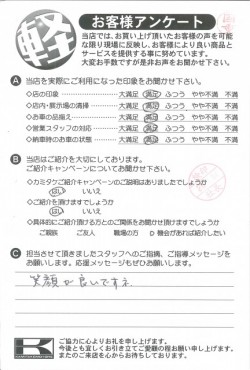 軽
お客様アンケート
当店では、お買い上げ頂いたお客様の声を可能
な限り現場に反映し、お客様により良い商品と
サービスを提供する事に努めています。
大変お手数ですが是非お声をお聞かせ下さい。
A 当店を実際にご利用になった印象をお聞かせ下さい。
◇店の印象 ・大満足 満足 ふつう やや不満 不満
◇店内・展示場の清掃 ・大満足 満足 ふつう やや不満 不満
◇お車の品揃え ・大満足 満足 ふつう やや不満 不満
◇営業スタッフの対応 ・大満足 満足 ふつう やや不満 不満
◇納車時のお車の状態 ・大満足 満足 ふつう やや不満 不満
B 当店はご紹介を大切にしております。
ご紹介キャンペーンについてお聞かせ下さい。
◇カミタケご紹介キャンペーンのご説明はありましたでしょうか
はい いいえ
◇ご紹介を頂けますでしょうか
はい いいえ
◇具体的にご紹介頂ける方とのご関係をお聞かせ頂けますでしょうか
ご親族 ご友人 職場の方 機会があれば紹介したい
C 担当させて頂きましたスタッフへのご指摘、ご指導メッセージを
お願いします。応援メッセージもぜひお願いします。
笑顔が良いですネ
K
ご協力に心よりお礼を申し上げます。
今後とも宜しくお引き立てご愛顧の程お願い申し上げます。
またのご来店を心からお待ちしております。